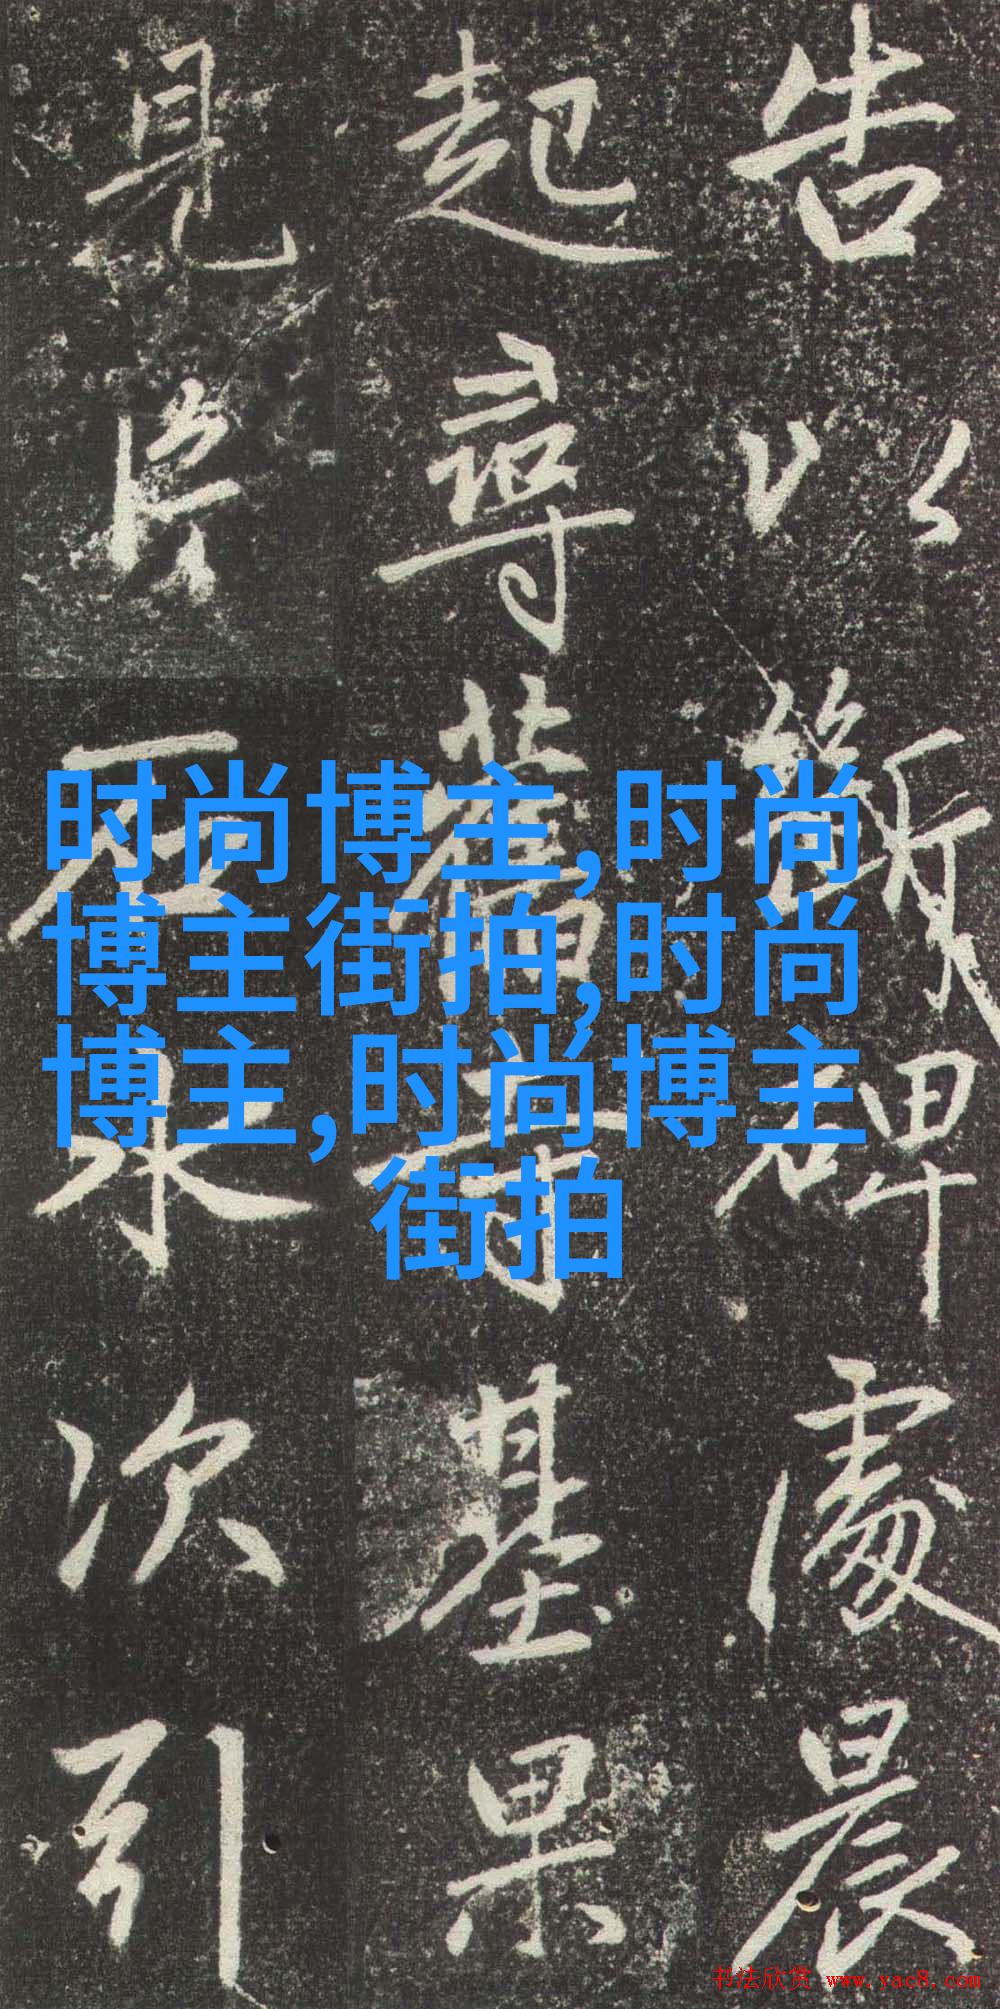 告以斷碑處晨
起尋舊寺基果
見片石水次引
时尚博主,时尚
博主街拍,时尚
博主,时尚博主
街拍
书法欣赏 www.yac8.com